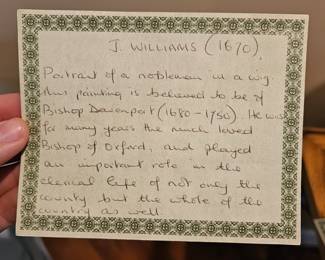 J. WILLIAMS (1670).
Portrait of a nobleman in a wig
this painting is believed to be of
Bishop Davenport (1680-1750). He was
for many years the much loved
Bishop of Oxford, and played
an important role in the
clerical life of not only the
county but the whole of the
country as well.